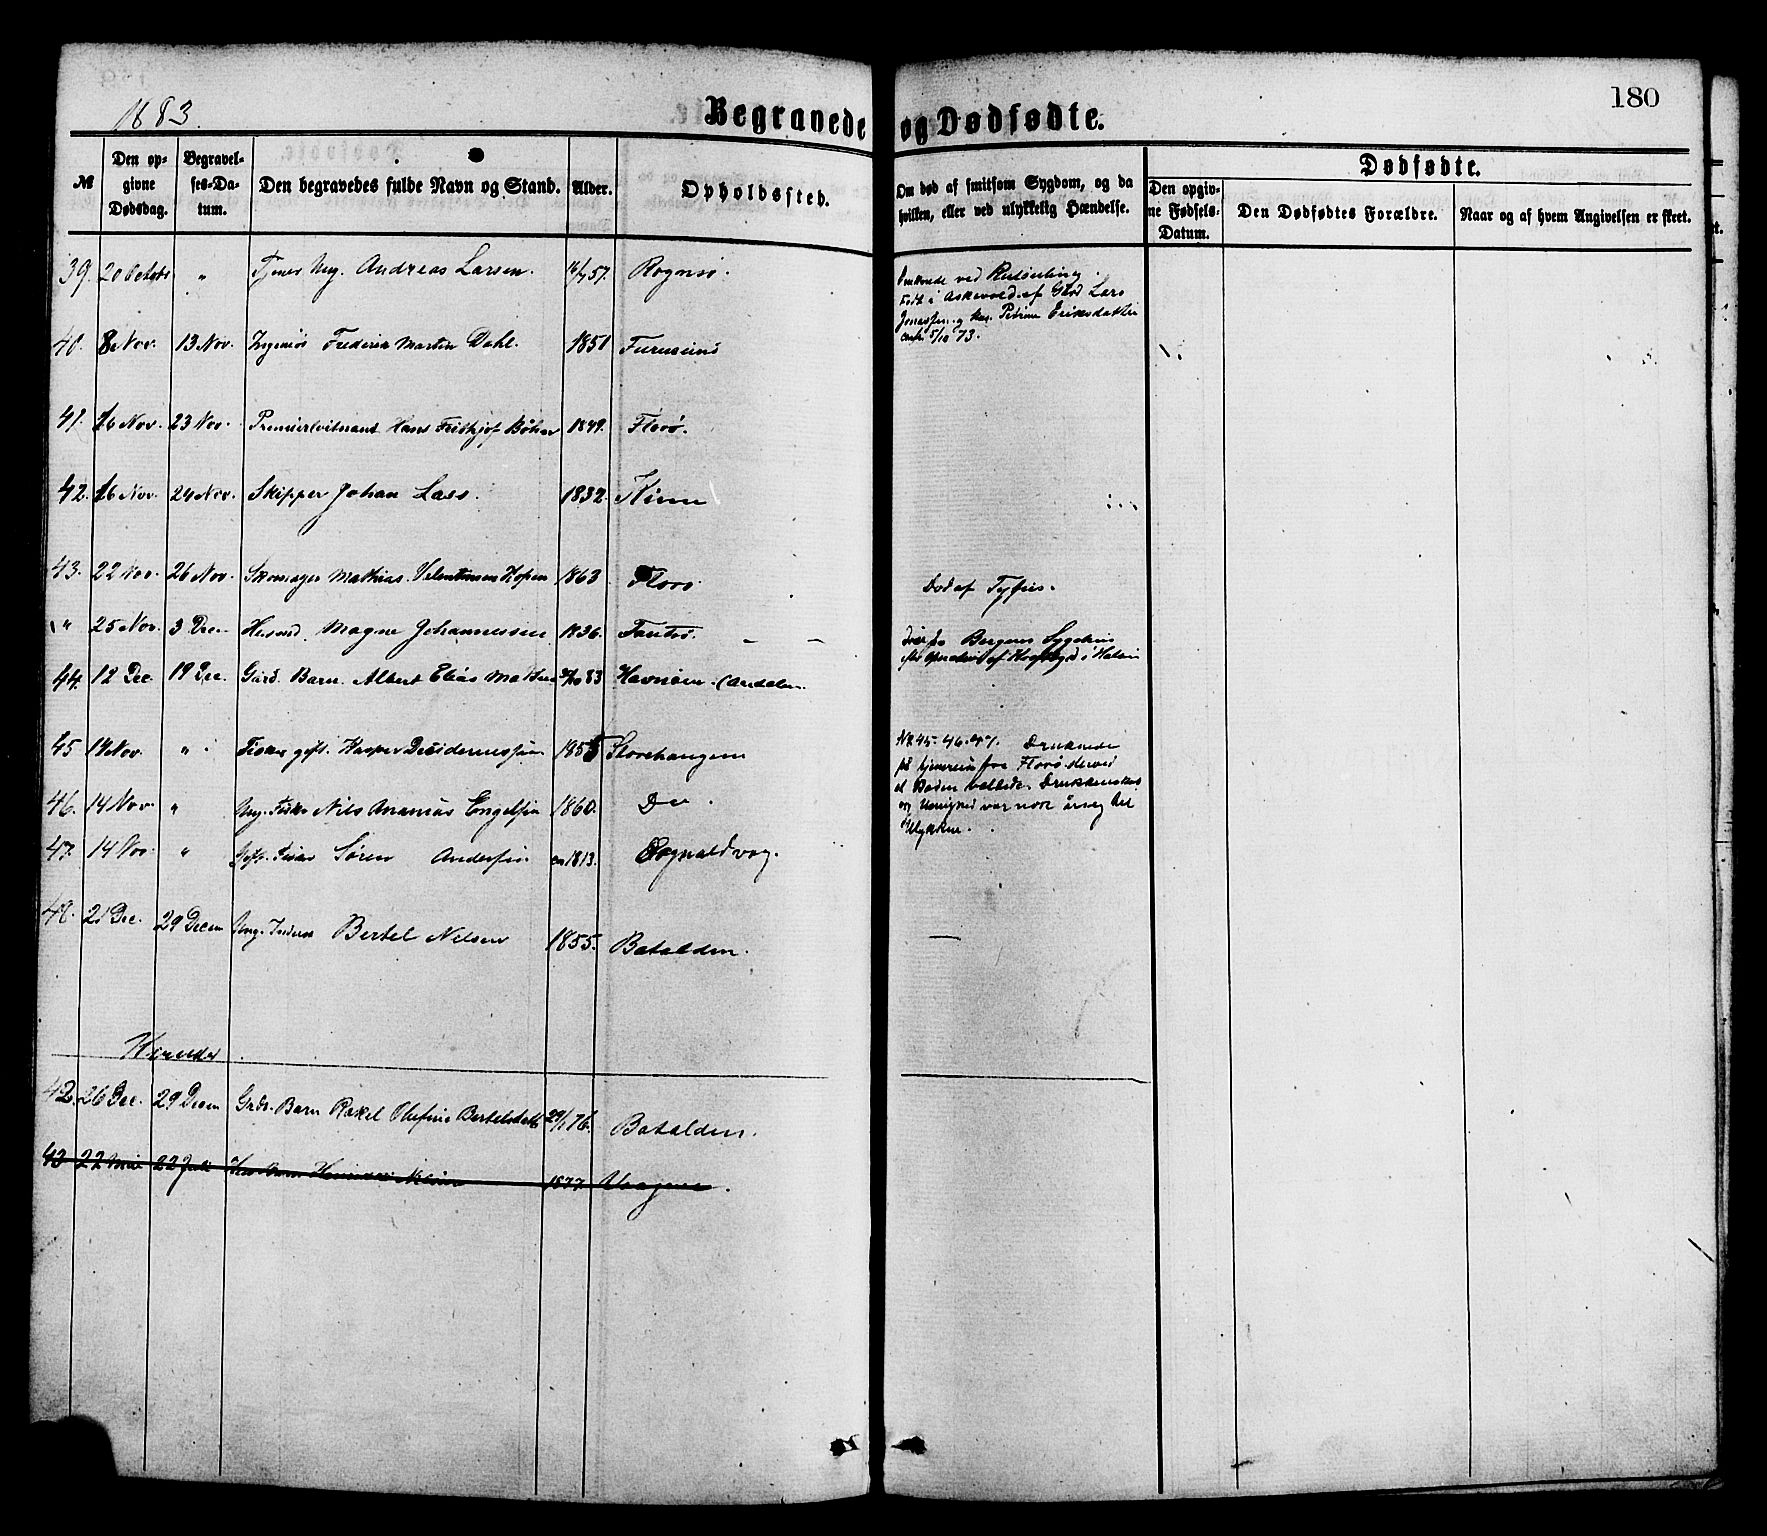 1883.
Begravede og Dødfødte.
180
№
Den op-
givne
Dødsdag.
Begravel-
ses-Da-
tum.
Den begravedes fulde Navn og Stand.
Alder.
Opholdssted.
Om død af smitsom Sygdom, og da
hvilken, eller ved ulykkelig Hændelse.
Dødfødte.
Den opgiv-
ne Fødsels-
Datum.
Den Dødfødtes Forældre.
Naar og af hvem Angivelsen er skeet.
39. 20 Octob " Andreas Larsen. 57. Rognsø.
ved
Født i Askevold af Gbd Lars
Petrine Eriksdatter
5/10 73.
40. 8 Nov. 13 Nov. Ingeniør Frederik Martin Dahl. 1851 Furusund
41. 16 Nov. 23 Nov. Premierleitnant Hans Fridthjof Bøhm 1849. Florø.
42. 16 Nov. 24 Nov. Skipper Johan Lass. 1832. Kinn
43. 22 Nov. 26 Nov. Skomager Mathias Velentinsen Hopen 1863 Florø
Død af Tyfus.
" 25 Nov. 3 Dec. Husmd. Magne Johannessen 1836. Tansø.
Bergens Sygehus
44. 12 Dec 19 Dec. Gård. Barn Albert Elias 83 Havnøen
45 14 Nov. " Fisker gift. Kasper 1855 Storehaugen
No 45. 46. 47. Druknede
på hjemreise fra Florø derved
at Baden
og Uenighed var nok årsag til
Ulykken.
46. 14 Nov. " Ung. Fisker Nils Ananias Engelsen 1860. Do.
47. 14 Nov. " Gift. Fisker Søren Andersen ca 1813. Rognaldvåg.
48. 21 Dec. 29 Decem Ung. Bertel Nilsen 1855. Batalden.
Kvinder.
42. 26 Dec. 29 Decem Grds. Barn Rakel Olufine Bertelsdatt 29/1 76. Batalden.
43 22 Mai 22 Juli 1877 Vaagene.